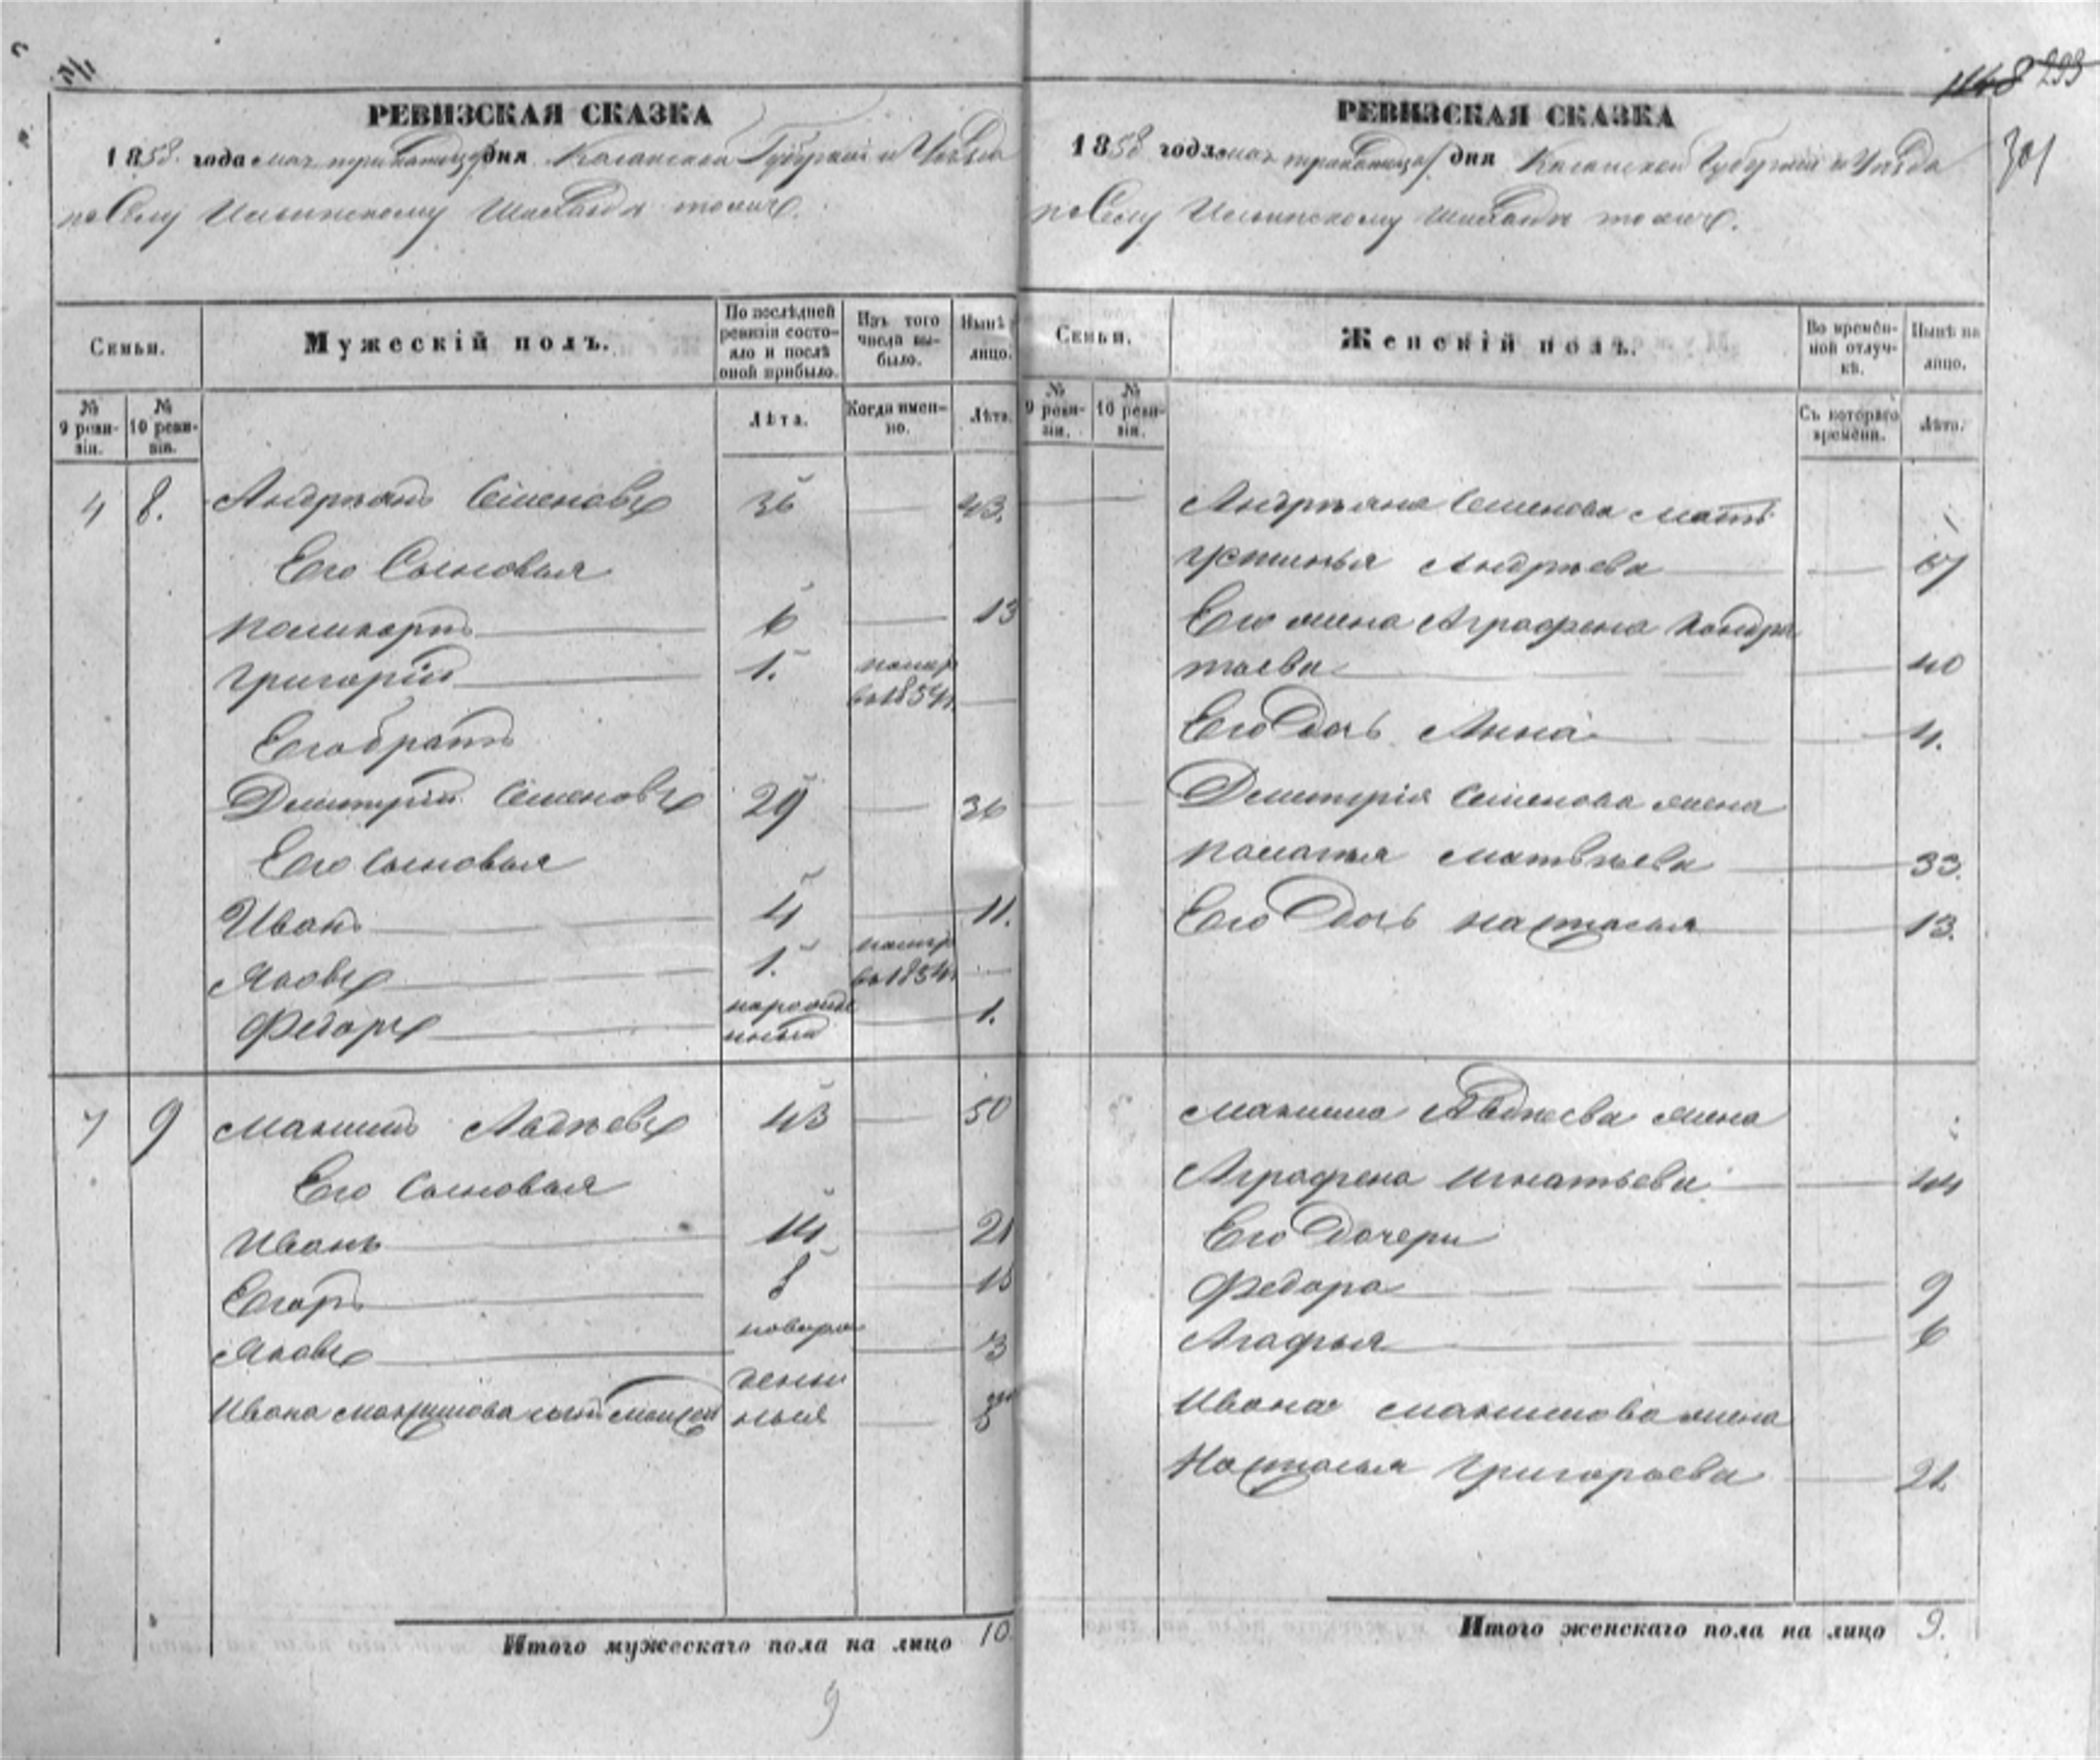 293
301
РЕВИЗСКАЯ СКАЗКА
1858 года мая тридцатаго дня Казанской Губерніи и Уѣзда
по Селу Ильинскому Шелангѣ тожъ.
Семьи.
Мужескій полъ.
По послѣдней ревизіи состояло и послѣ оной прибыло.
Изъ того числа выбыло.
Нынѣ лицо.
№ 9 ревизіи.
№ 10 ревизіи.
Лѣта.
Когда именно.
Лѣта.
4 8. Андреянъ Семеновъ 36 43.
Его Сыновья
Поликарпъ 6 13
Григорій 1. помер в 1854 г.
Его братъ
Дмитрій Семеновъ 29 36
Его сыновья
Иванъ 4 11.
Яковъ 1. помер в 1854 г.
Федоръ 1.
7 9 Максимъ Авдѣевъ 43 50
Его сыновья
Иванъ 14 21
Егоръ 8 15
Яковъ новорожденныя 3
Ивана Максимова сынъ
Итого мужескаго пола на лицо 10.
9
РЕВИЗСКАЯ СКАЗКА
1858 года мая тридцатаго дня Казанской Губерніи и Уѣзда
по Селу Ильинскому тожъ.
Семьи.
Женскій полъ.
Во временной отлучкѣ.
Нынѣ на лицо.
№ 9 ревизіи.
№ 10 ревизіи.
Съ котораго времени.
Лѣта.
Андреяна Семенова мать
Устинья Андреева
Его жена Аграфена Кондра
тьева 40
Его Дочь Анна 4.
Дмитрія Семенова жена
Палагья Матвѣева 33.
Его Дочь Настасья 13.
Максима Авдѣева жена
Аграфена Игнатьева 44
Его Дочери
Федора 9
Агафья 6
Ивана Максимова жена
Настасья Григорьева 21.
Итого женскаго пола на лицо 9.